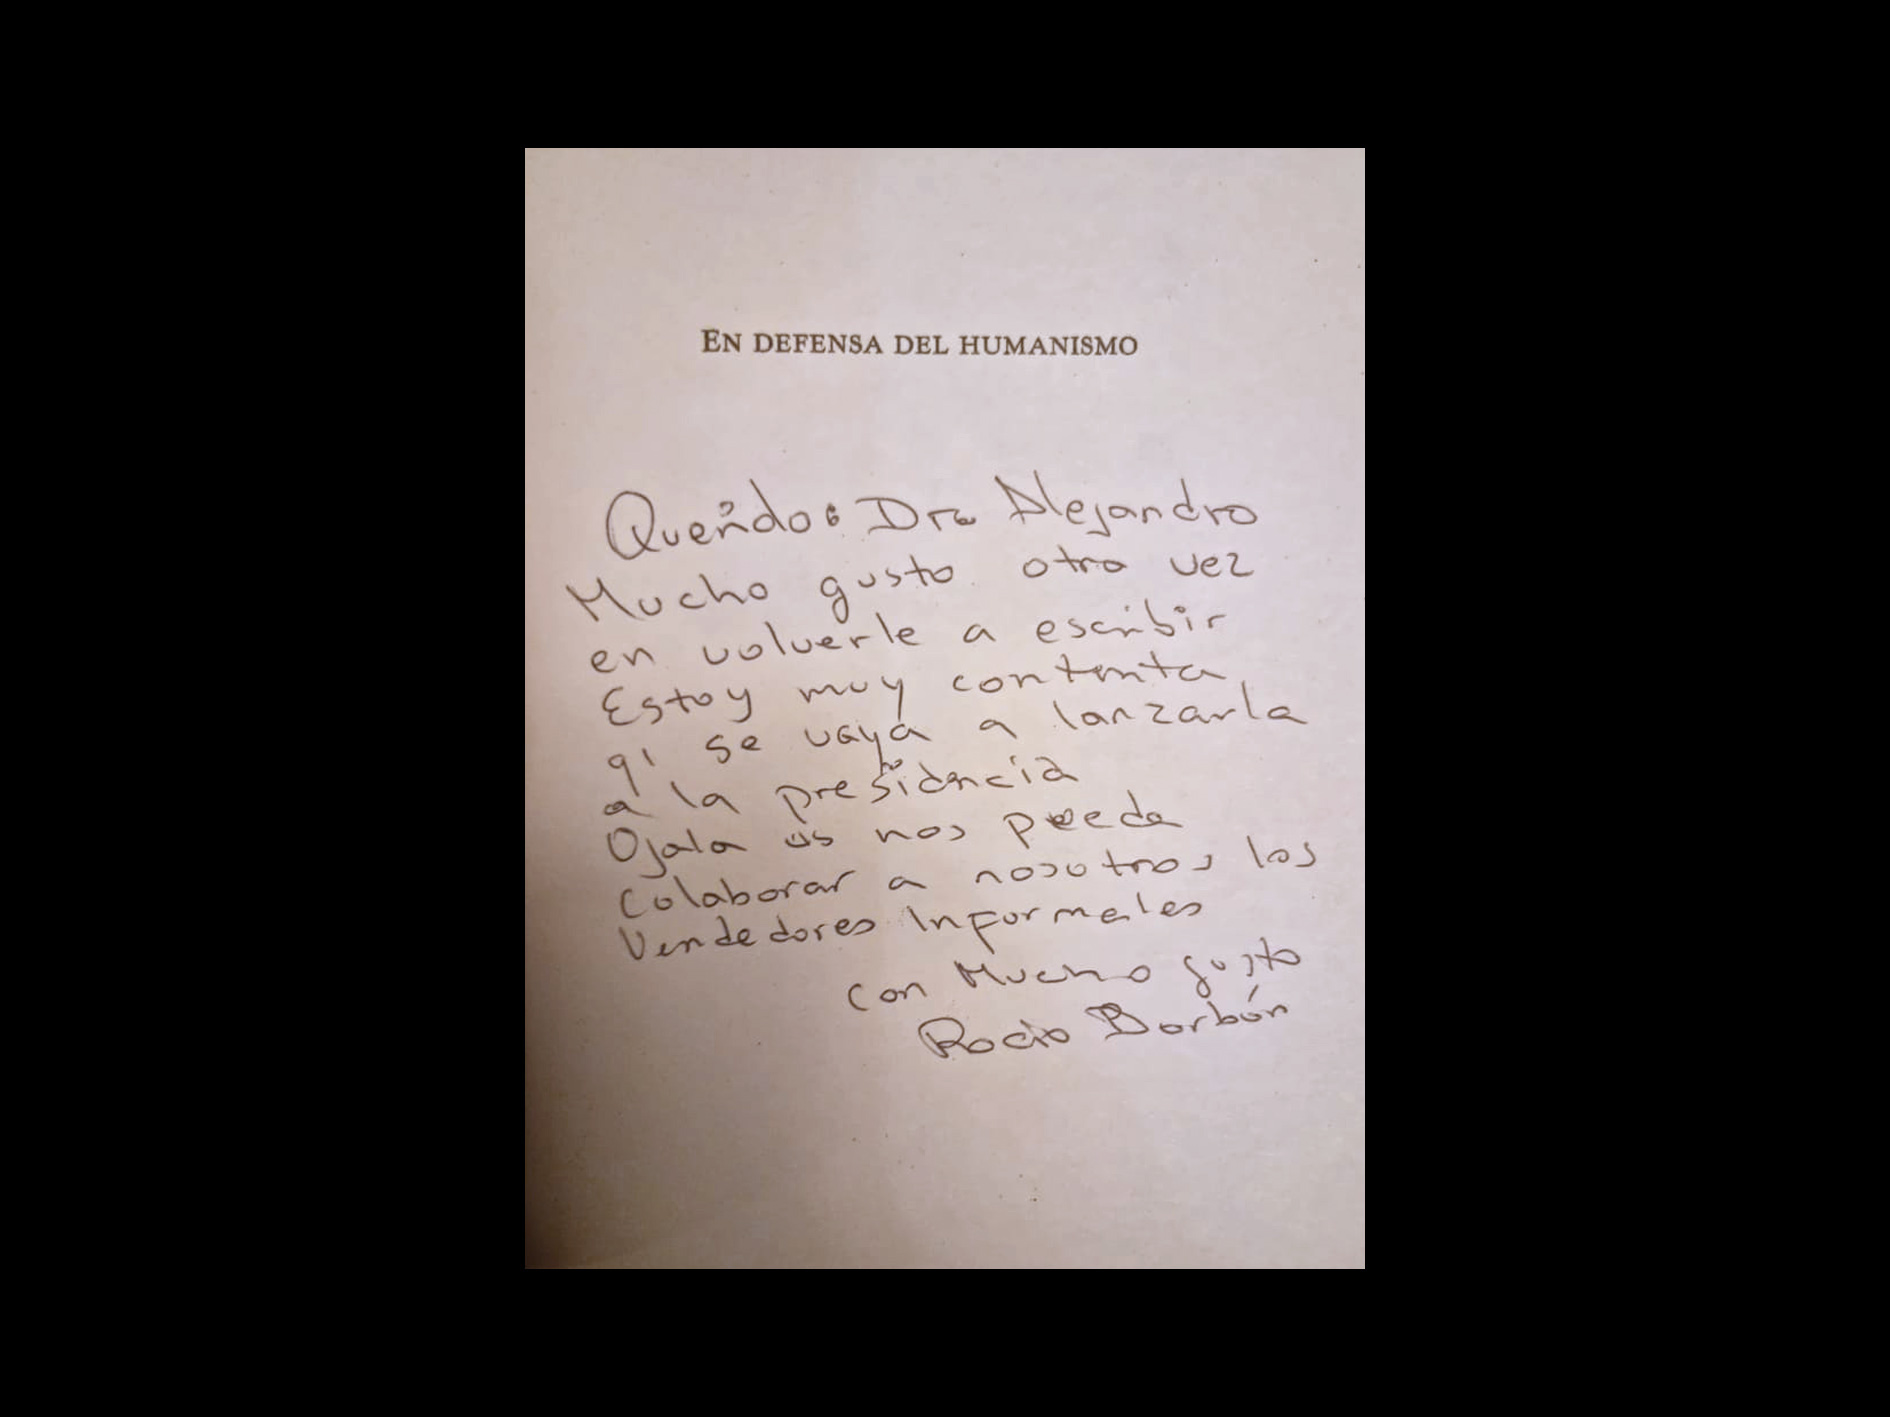 EN DEFENSA DEL HUMANISMO
Querido: Dr. Alejandro
Mucho gusto otra vez
en volverle a escribir
Estoy muy contenta
q' se vaya a lanzarla
a la presidencia
Ojala us nos peeda
Colaborar a nosotros los
Vendedores Informales
con Mucho gusto
Rocio Borbón